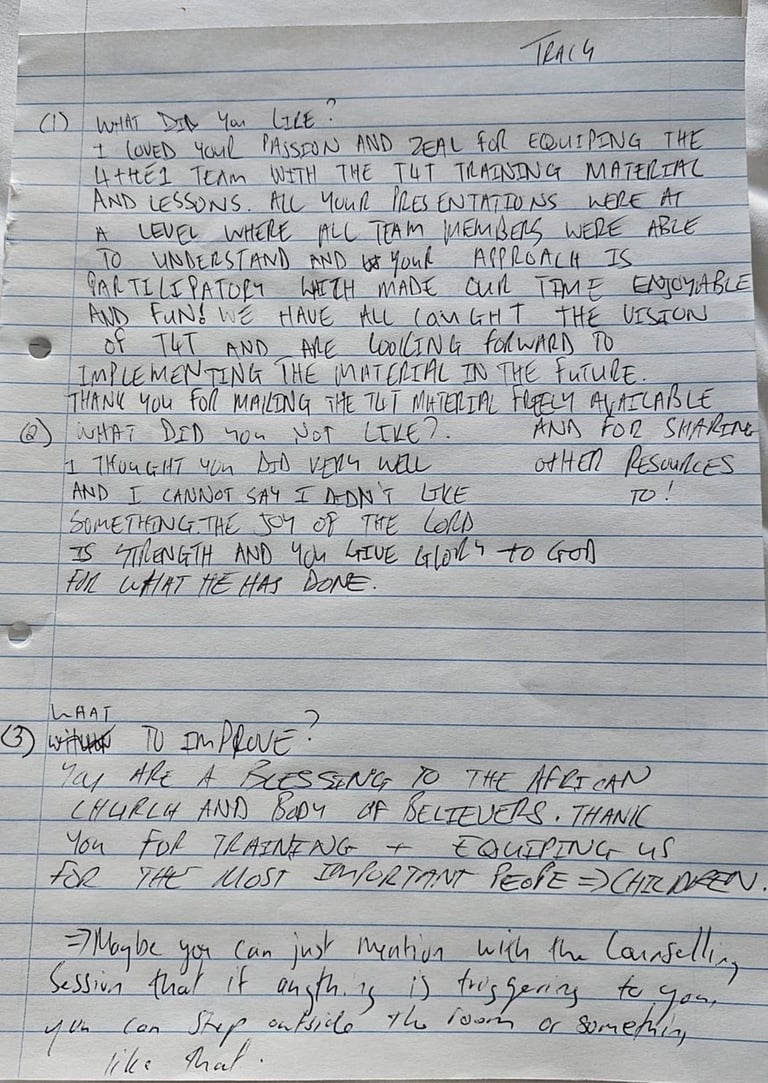 TRACY
(1) WHAT DID YOU LIKE?
I LOVED YOUR PASSION AND ZEAL FOR EQUIPING THE
4+HE1 TEAM WITH THE T4T TRAINING MATERIAL
AND LESSONS. ALL YOUR PRESENTATIONS WERE AT
A LEVEL WHERE ALL TEAM MEMBERS WERE ABLE
TO UNDERSTAND AND YOUR APPROACH IS
PARTICIPATORY WHICH MADE OUR TIME ENJOYABLE
AND FUN! WE HAVE ALL CAUGHT THE VISION
OF T4T AND ARE LOOKING FORWARD TO
IMPLEMENTING THE MATERIAL IN THE FUTURE.
THANK YOU FOR MAKING THE T4T MATERIAL FREELY AVAILABLE
AND FOR SHARING
OTHER RESOURCES
TO!
(2) WHAT DID YOU NOT LIKE?.
I THOUGHT YOU DID VERY WELL
AND I CANNOT SAY I DIDN'T LIKE
SOMETHING. THE JOY OF THE LORD
IS STRENGTH AND YOU GIVE GLORY TO GOD
FOR WHAT HE HAS DONE.
WHAT
(3) TO IMPROVE?
YOU ARE A BLESSING TO THE AFRICAN
CHURCH AND BODY OF BELIEVERS. THANK
YOU FOR TRAINING + EQUIPING US
FOR THE MOST IMPORTANT PEOPE => CHILDREN.
=> Maybe you can just mention with the Counselling
Session that if anything is triggering to you,
you can step outside the room or something
like that.